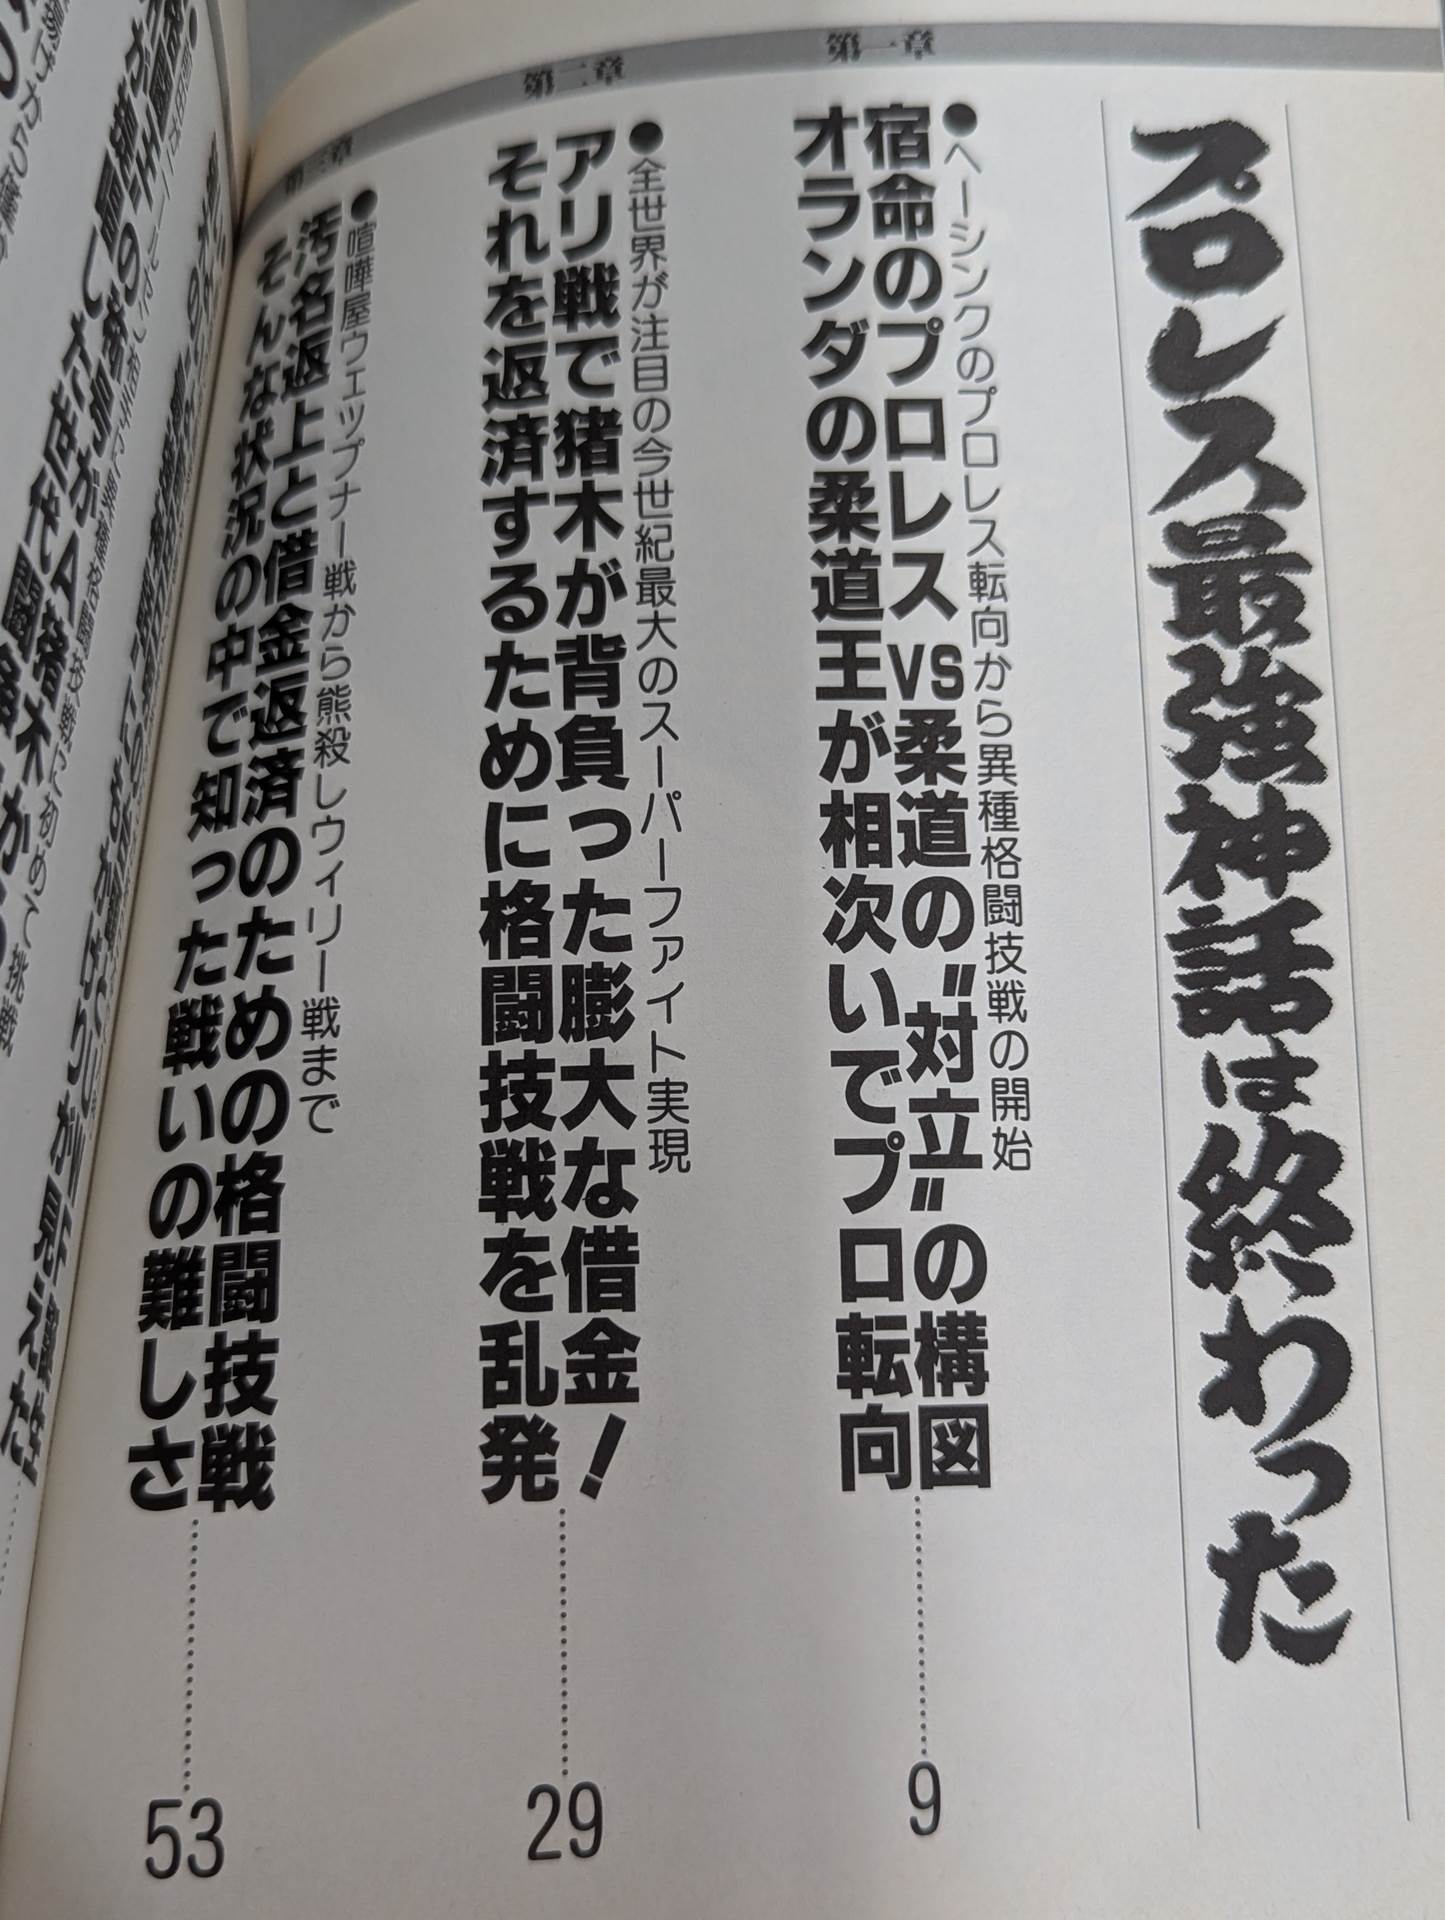 プロレス最強神話は終わった
第一章
●ヘーシンクのプロレス転向から異種格闘技戦の開始
宿命のプロレスVS柔道の〝対立〟の構図
オランダの柔道王が相次いでプロ転向……9
第二章
●全世界が注目の今世紀最大のスーパーファイト実現
アリ戦で猪木が背負った膨大な借金!
それを返済するために格闘技戦を乱発……29
第三章
●喧嘩屋ウェップナー戦から熊殺しウィリー戦まで
汚名返上と借金返済のための格闘技戦
そんな状況の中で知った戦いの難しさ……53